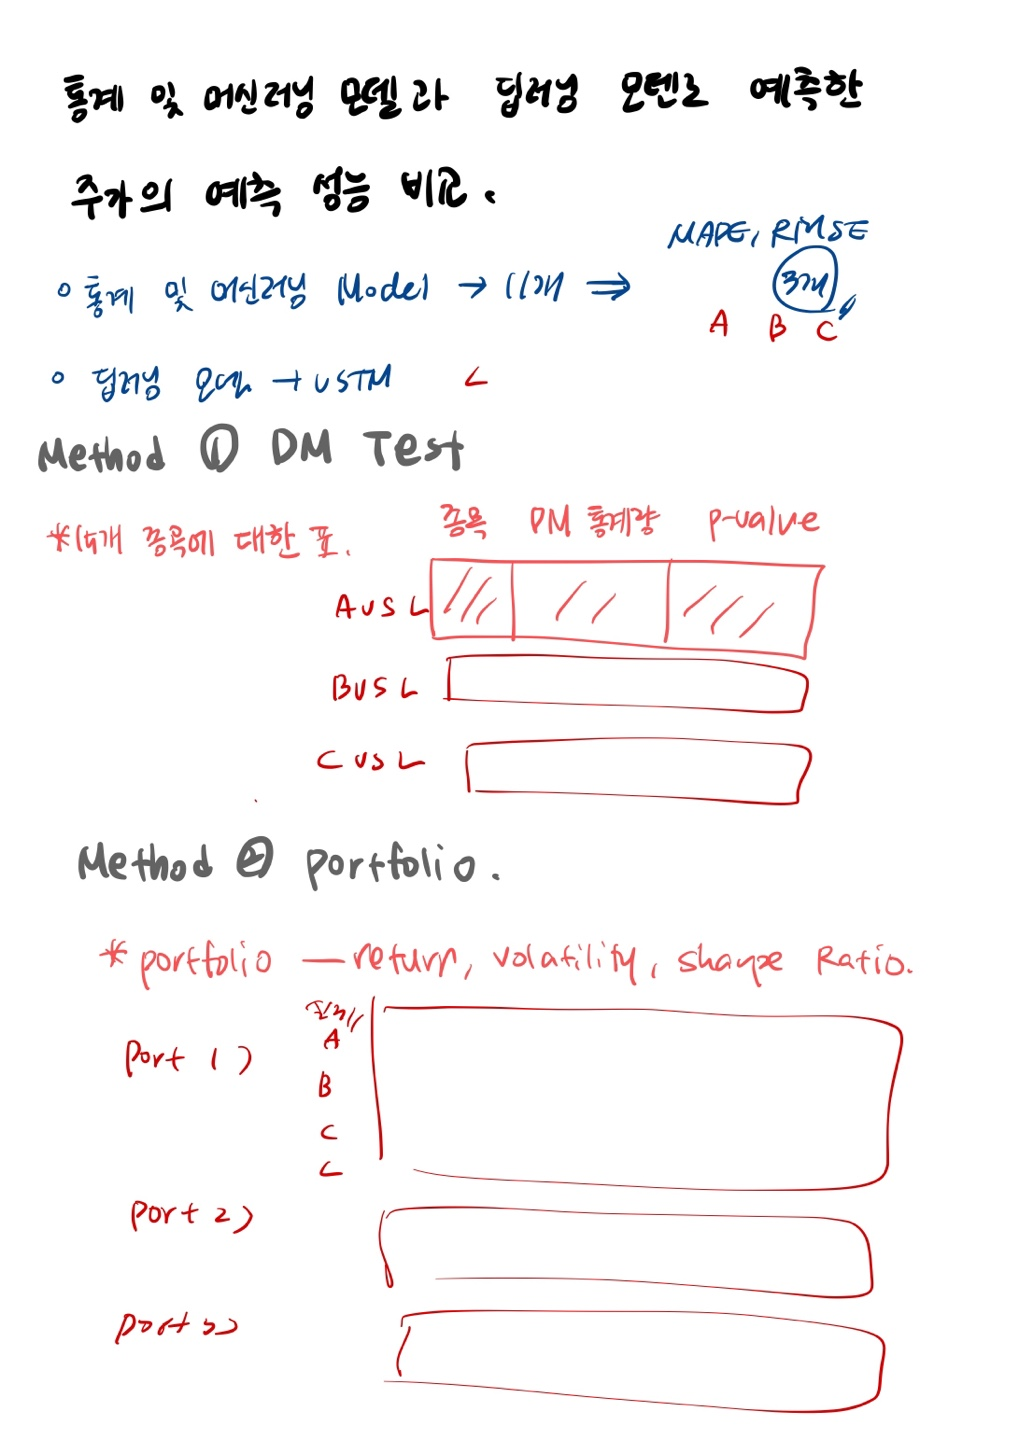 통계 및 머신러닝 모델과 딥러닝 모델로 예측한
주가의 예측 성능 비교.
MAPE, RMSE
◦ 통계 및 머신러닝 Model → 11개 ⇒ 3개
A B C
◦ 딥러닝 모델 → LSTM L
Method ① DM Test
종목 DM 통계량 p-value
*14개 종목에 대한 표.
A vs L
B vs L
C vs L
Method ② portfolio.
* portfolio — return, volatility, sharpe Ratio.
port 1)
A
B
C
L
port 2)
port 3)